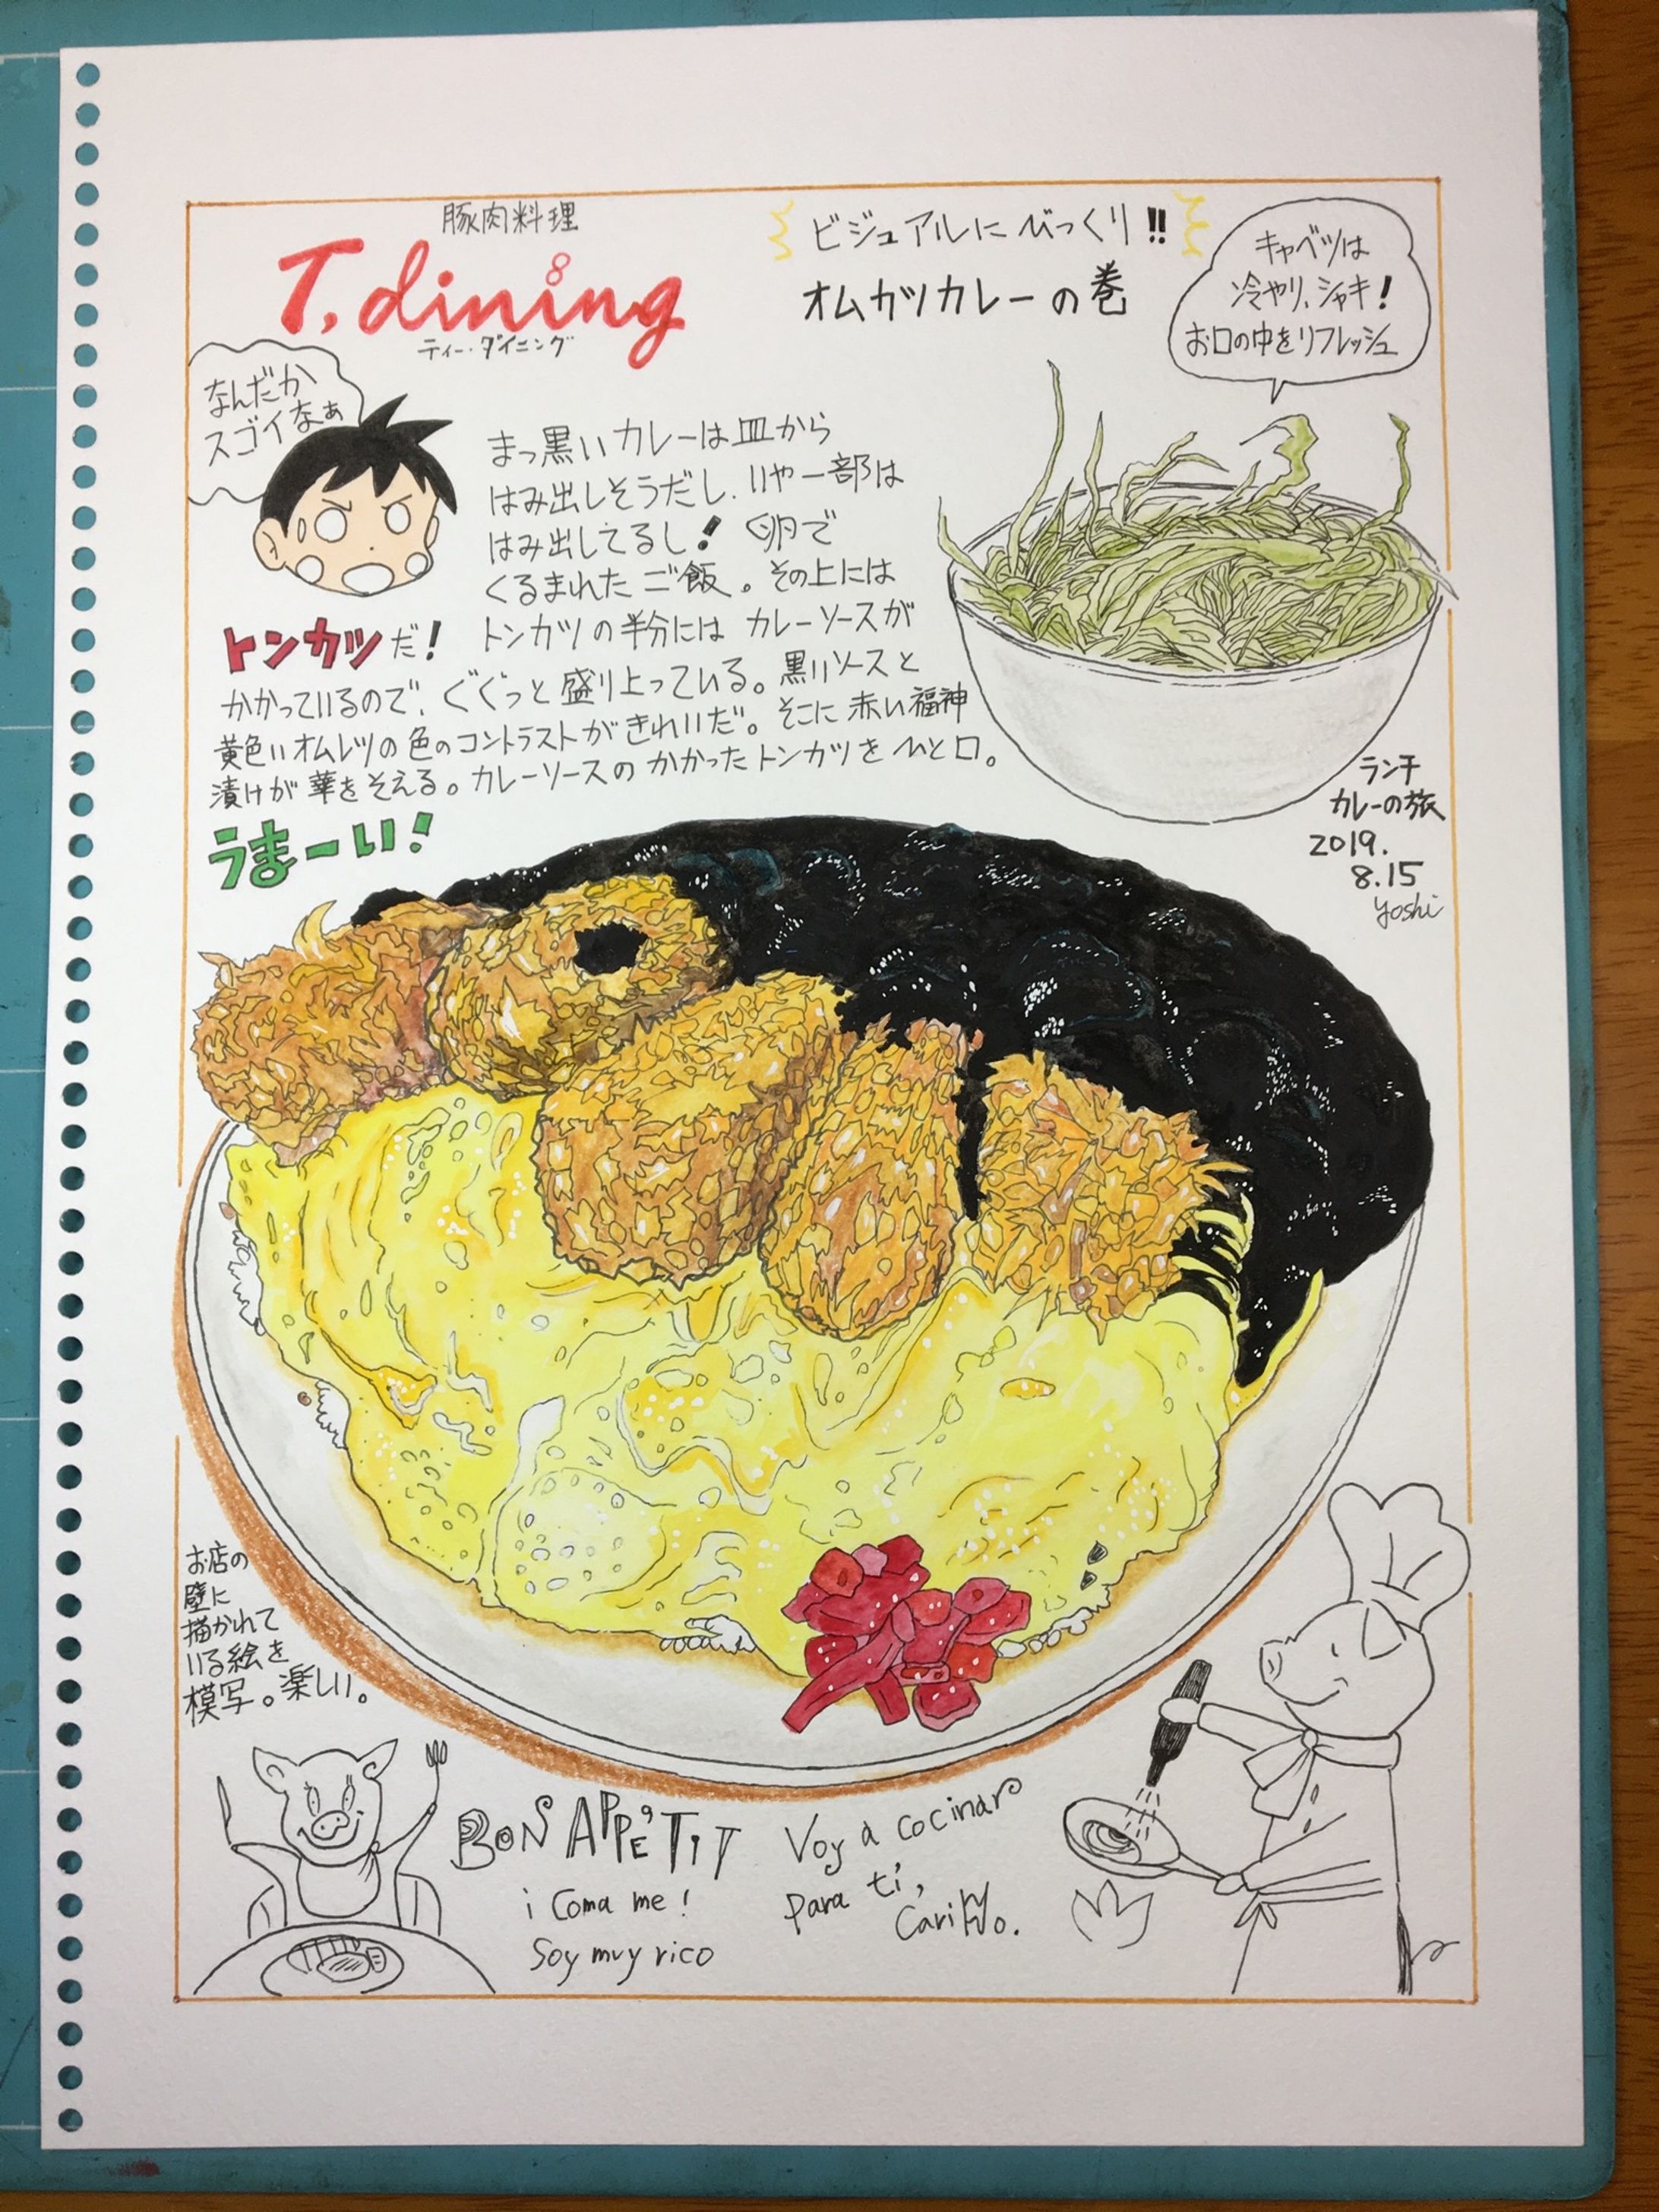 豚肉料理
T. dining
ティー・ダイニング
ビジュアルにびっくり!!
オムカツカレーの巻
キャベツは
冷やり、シャキ!
お口の中をリフレッシュ
なんだか
スゴイなぁ
まっ黒いカレーは皿から
はみ出しそうだし、いや一部は
はみ出してるし! 卵で
くるまれたご飯。その上には
トンカツだ! トンカツの半分には カレーソースが
かかっているので、ぐぐっと盛り上っている。黒いソースと
黄色いオムレツの色のコントラストがきれいだ。そこに赤い福神
漬けが華をそえる。カレーソースのかかったトンカツをひと口。
うまーい!
ランチ
カレーの旅
2019.
8.15
yoshi
お店の
壁に
描かれて
いる絵を
模写。楽しい。
BON APPÉTIT
¡ Coma me !
Soy muy rico
Voy a cocinar
para ti,
Cariño.